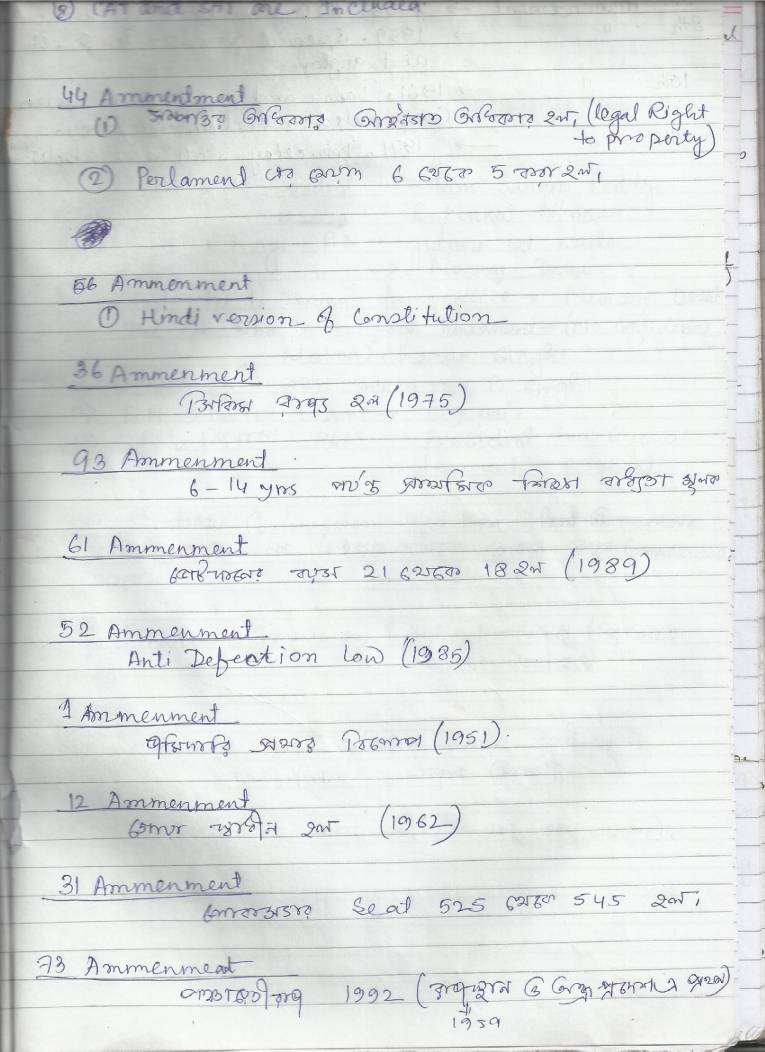 ⑧ CAT and SAT are Included
44 Ammendment
① সম্পত্তির অধিকার আইনগত অধিকার হল, (legal Right
to property)
② Perlament এর মেয়াদ 6 থেকে 5 করা হল,
56 Ammenment
① Hindi version of Constitution
36 Ammenment
সিকিম রাজ্য হল (1975)
93 Ammenment
6 - 14 yrs পর্যন্ত প্রাথমিক শিক্ষা বাধ্যতা মূলক
61 Ammenment
ভোটদানের বয়স 21 থেকে 18 হল (1989)
52 Ammenment
Anti Defection Low (1985)
1 Ammenment
জমিদারি প্রথার বিলোপ (1951).
12 Ammenment
গোয়া স্বাধীন হল (1962)
31 Ammenment
লোকসভার Seat 525 থেকে 545 হল,
73 Ammenment
পঞ্চায়েতীরাজ 1992 (রাজস্থান ও অন্ধ্রপ্রদেশ এ প্রথম)
1959